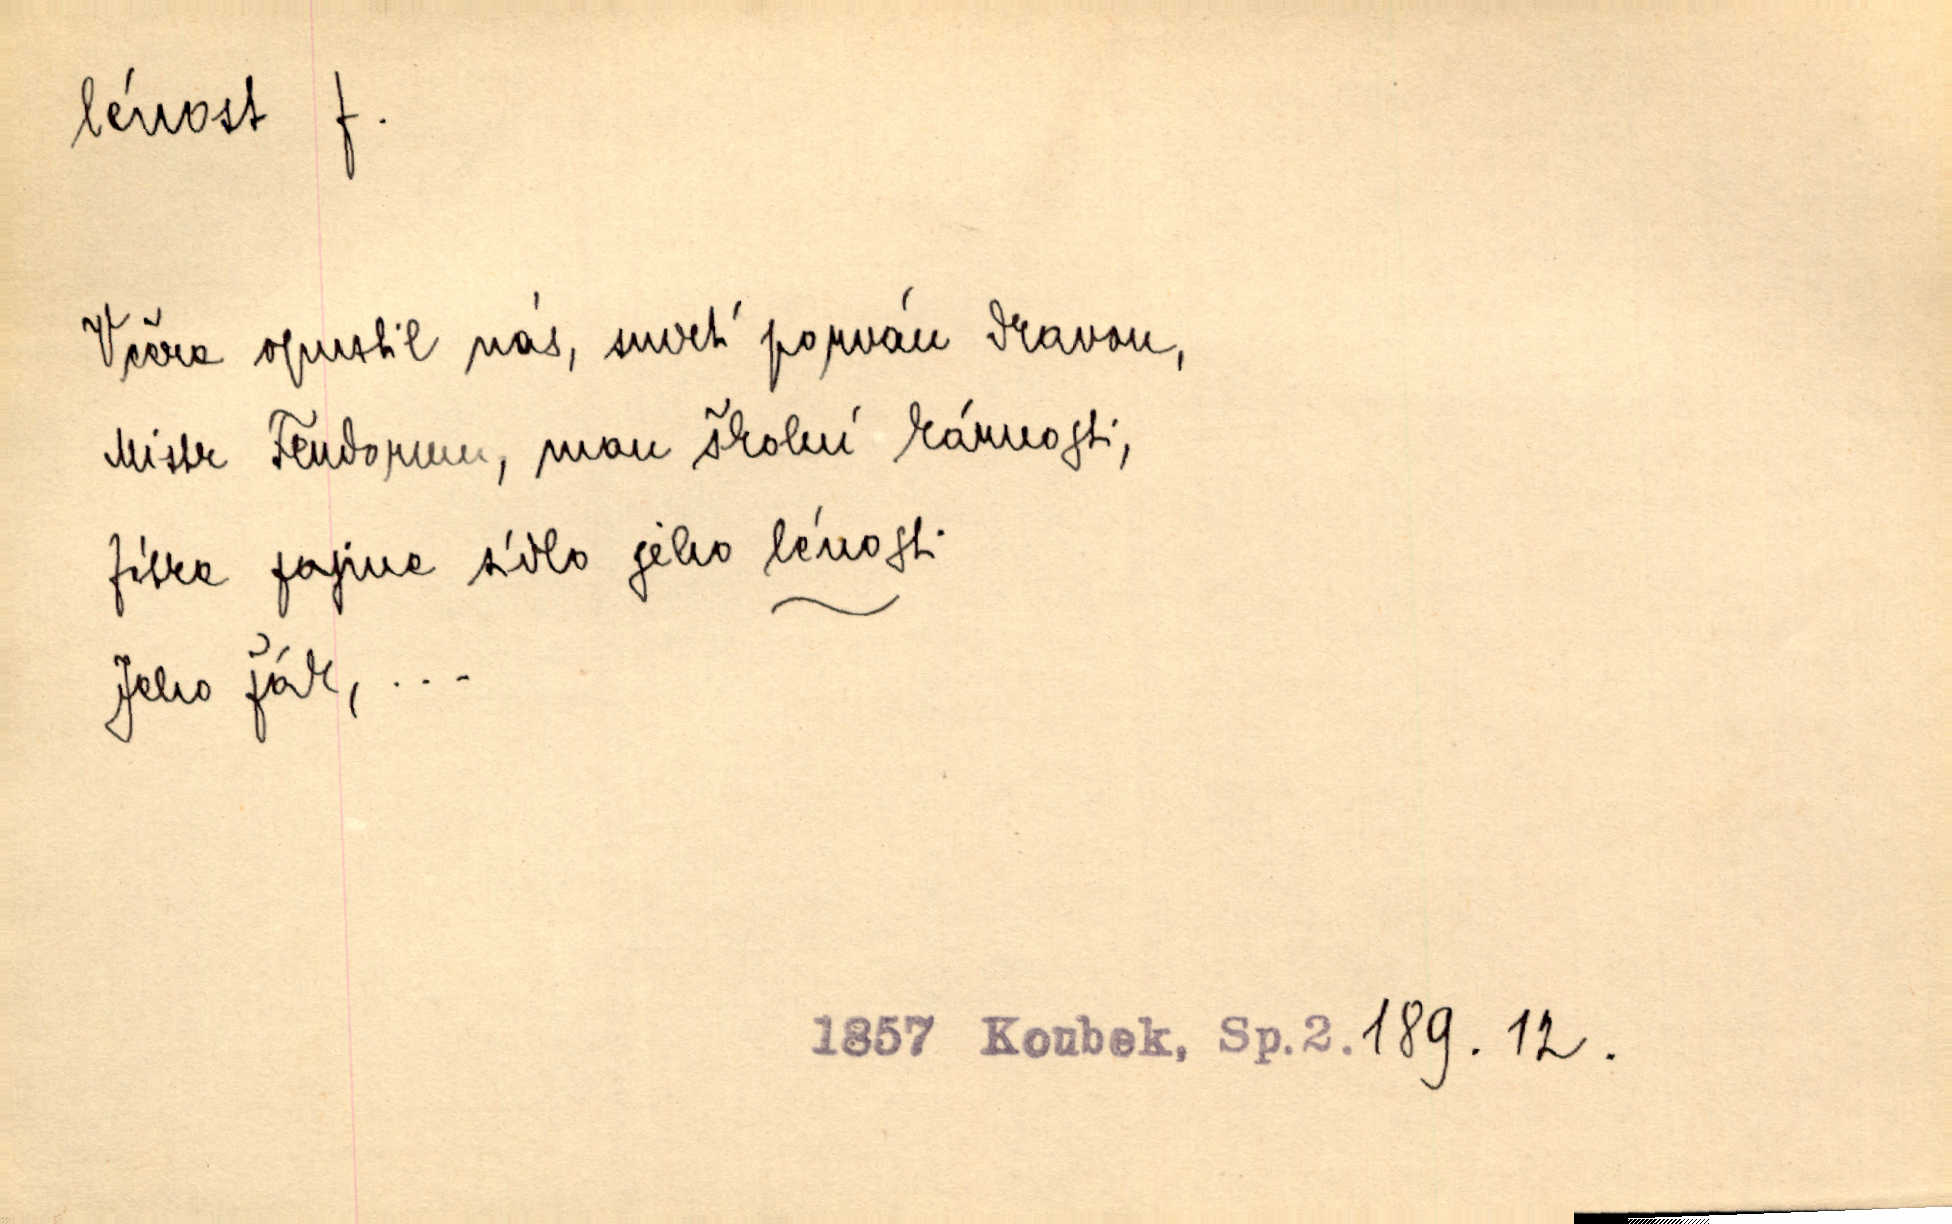 lénost f.
Včera opustil nás, smrtí porván dravou,
Mistr Feudorum, man školní kárnosti,
jitra zajme sídlo jeho lénosti
Jeho žák, ...
1857 Koubek, Sp.2.189.12.